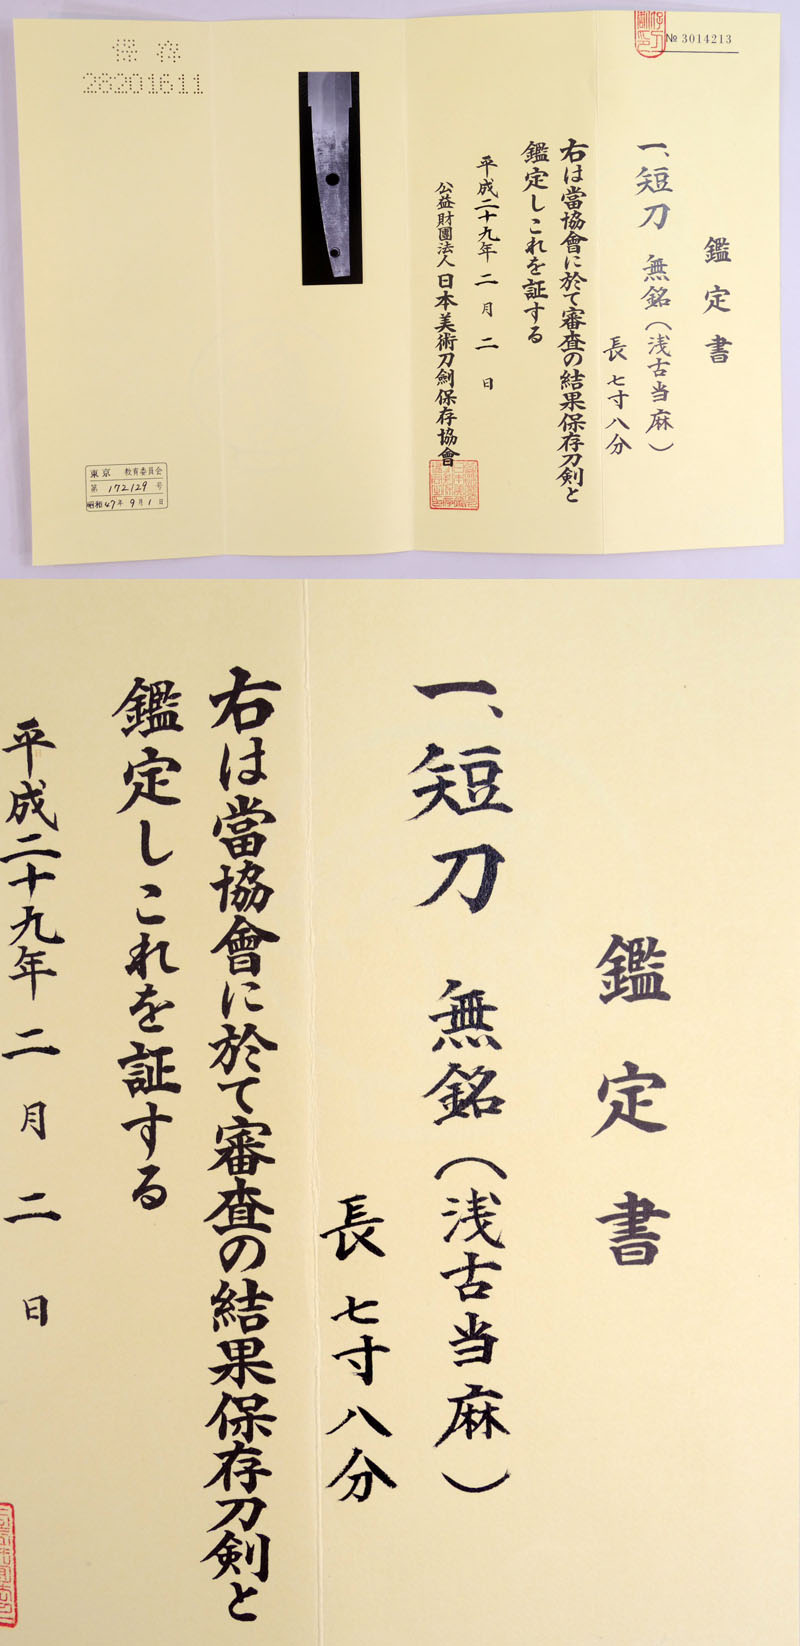 № 3014213
鑑定書
一、短刀 無銘(浅古当麻)
長 七寸八分
右は當協會に於て審査の結果保存刀剣と
鑑定しこれを証する
平成二十九年 二月 二日
公益財團法人 日本美術刀劍保存協會
保存
28201611
東京 教育委員会
第 172129 号
昭和47年 9月 1日
鑑定書
一、短刀 無銘(浅古当麻)
長 七寸八分
右は當協會に於て審査の結果保存刀剣と
鑑定しこれを証する
平成二十九年 二月 二日